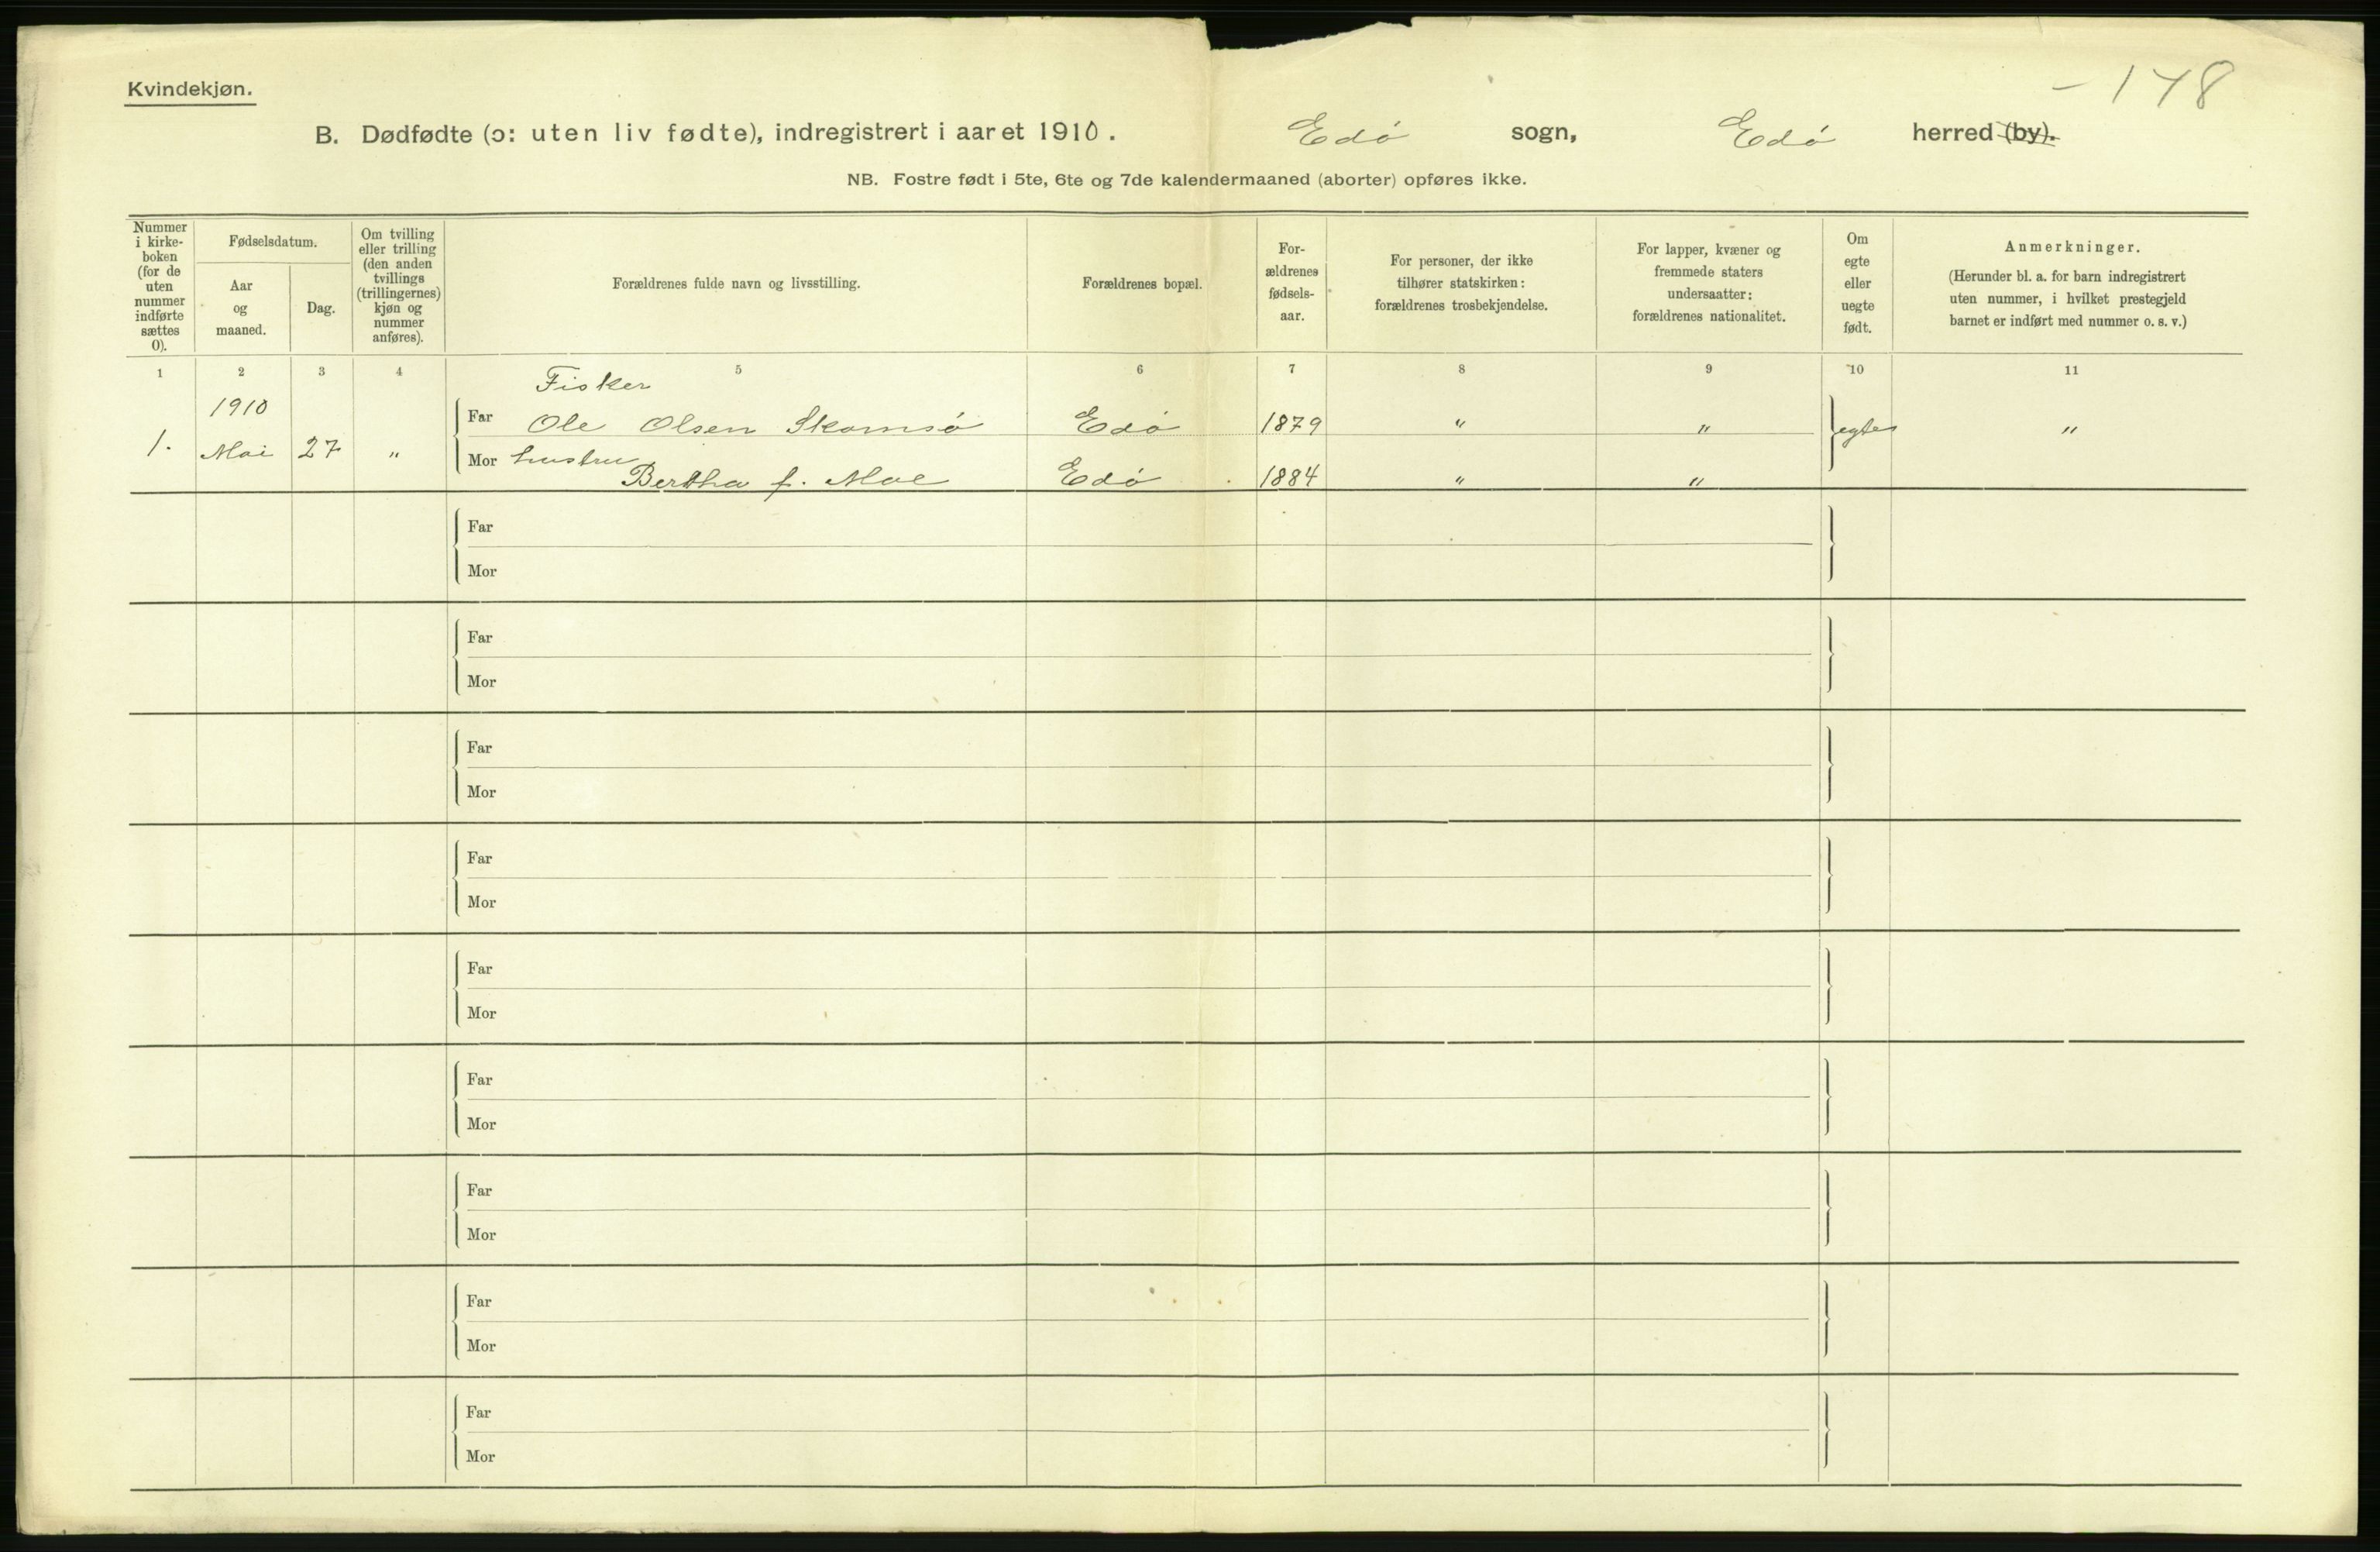 Kvindekjøn.
- 178
B. Dødfødte (ɔ: uten liv fødte), indregistrert i aaret 1910. Edö sogn, Edö herred (by).
NB. Fostre født i 5te, 6te og 7de kalendermaaned (aborter) opføres ikke.
Nummer i kirke-
boken
(for de
uten
nummer
indførte
sættes
0).
Fødselsdatum.
Aar
og
maaned.
Dag.
Om tvilling
eller trilling
(den anden
tvillings
(trillingernes)
kjøn og
nummer
anføres).
Forældrenes fulde navn og livsstilling.
Forældrenes bopæl.
For-
ældrenes
fødsels-
aar.
For personer, der ikke
tilhører statskirken:
forældrenes trosbekjendelse.
For lapper, kvæner og
fremmede staters
undersaatter:
forældrenes nationalitet.
Om
egte
eller
uegte
født.
Anmerkninger.
(Herunder bl. a. for barn indregistrert
uten nummer, i hvilket prestegjeld
barnet er indført med nummer o. s. v.)
1 2 3 4 5 6 7 8 9 10 11
Fisker
1910
Far Ole Olsen Skomsö Edö 1879 " " egte "
1. Mai 27 "
Mor hustru
Bertha f. Moe Edö 1884 " "
Far
Mor
Far
Mor
Far
Mor
Far
Mor
Far
Mor
Far
Mor
Far
Mor
Far
Mor
Far
Mor